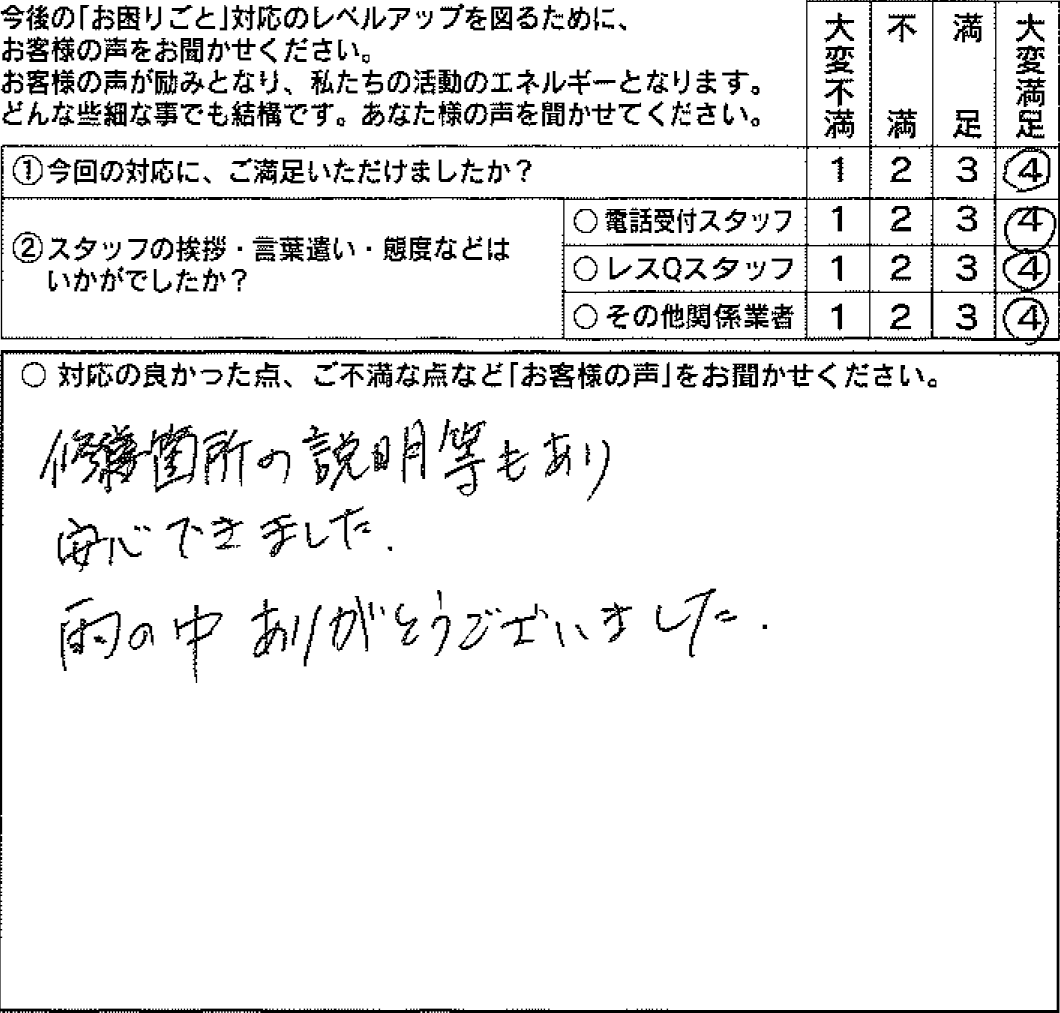 今後の｢お困りごと｣対応のレベルアップを図るために、
お客様の声をお聞かせください。
お客様の声が励みとなり、私たちの活動のエネルギーとなります。
どんな些細な事でも結構です。あなた様の声を聞かせてください。
大変不満 不満 満足 大変満足
①今回の対応に、ご満足いただけましたか？ 1 2 3 4
②スタッフの挨拶・言葉遣い・態度などは
いかがでしたか？
○電話受付スタッフ 1 2 3 4
○レスQスタッフ 1 2 3 4
○その他関係業者 1 2 3 4
○対応の良かった点、ご不満な点など｢お客様の声｣をお聞かせください。
修繕箇所の説明等もあり
安心できました.
雨の中 ありがとうございました.